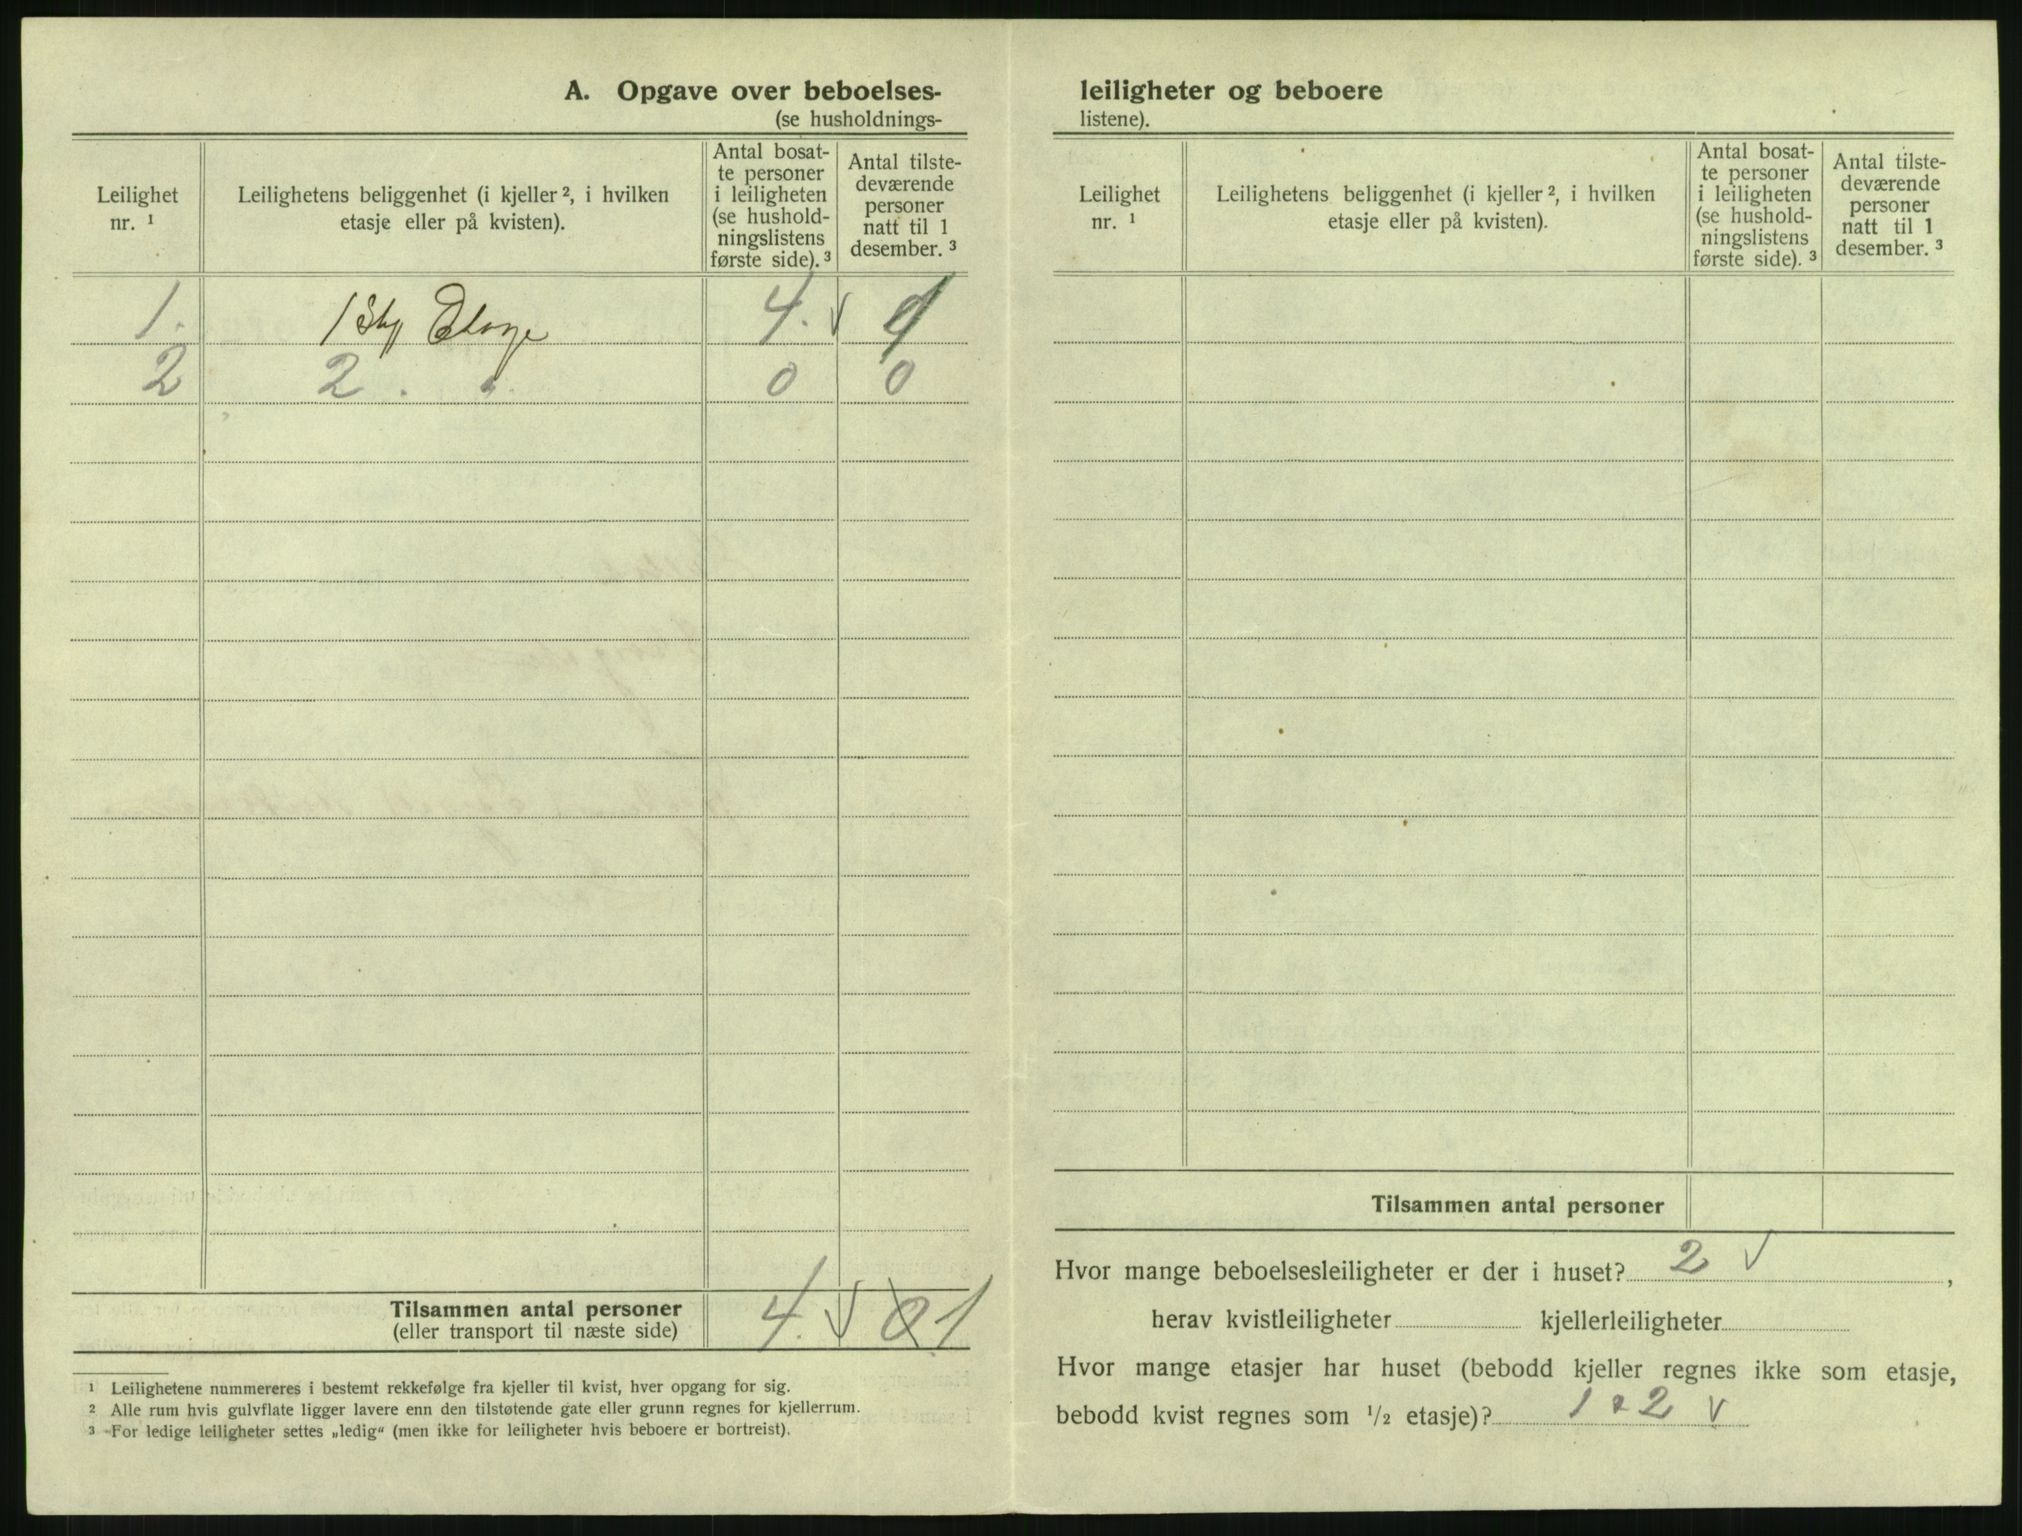 A. Opgave over beboelses-
(se husholdnings-
Leilighet nr. ¹
Leilighetens beliggenhet (i kjeller ², i hvilken etasje eller på kvisten).
Antal bosat-
te personer
i leiligheten
(se hushold-
ningslistens
første side). ³
Antal tilste-
deværende
personer
natt til 1
desember. ³
1. 1 Etage 4. √
2 2. " 0 0
Tilsammen antal personer 4. √ 0 1
(eller transport til næste side)
¹ Leilighetene nummereres i bestemt rekkefølge fra kjeller til kvist, hver opgang for sig.
² Alle rum hvis gulvflate ligger lavere enn den tilstøtende gate eller grunn regnes for kjellerrum.
³ For ledige leiligheter settes „ledig“ (men ikke for leiligheter hvis beboere er bortreist).
leiligheter og beboere
listene).
Leilighet nr. ¹
Leilighetens beliggenhet (i kjeller ², i hvilken etasje eller på kvisten).
Antal bosat-
te personer
i leiligheten
(se hushold-
ningslistens
første side). ³
Antal tilste-
deværende
personer
natt til 1
desember. ³
Tilsammen antal personer
Hvor mange beboelsesleiligheter er der i huset? 2 √,
herav kvistleiligheter kjellerleiligheter
Hvor mange etasjer har huset (bebodd kjeller regnes ikke som etasje,
bebodd kvist regnes som ½ etasje)? 1 2 √